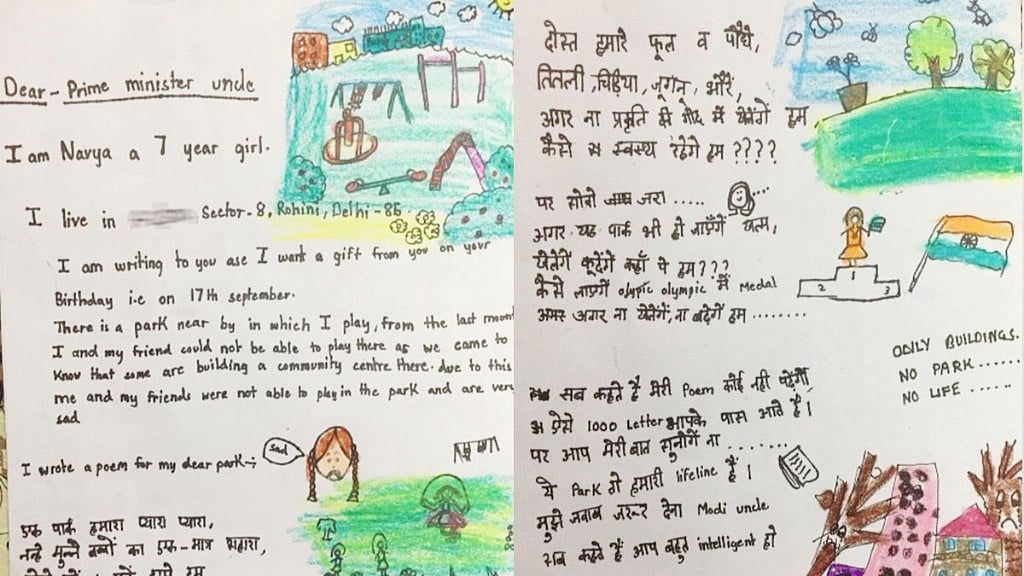 Dear - Prime minister uncle
I am Navya a 7 year girl.
I live in Sector - 8, Rohini, Delhi - 85
I am writing to you ase I want a gift from you on your
Birthday i.e on 17th september.
There is a park near by in which I play, from the last
I and my friend could not be able to play there as we came to
know that some are building a community centre there. due to this
me and my friends were not able to play in the park and are very
sad
sad
I wrote a poem for my dear park -;
एक पार्क हमारा प्यारा प्यारा,
नन्हे मुन्ने बच्चों का एक-मात्र सहारा,
दोस्त हमारे फूल व पौधे,
तितली, चिड़िया, जूगनू, भौरें,
अगर ना प्रकृति की गोद में खेलेंगे हम
कैसे स्वस्थ रहेंगे हम ????
पर सोचो जरा .....
अगर यह पार्क भी हो जाएँगे खत्म,
खेलेंगे कूदेंगे कहाँ पे हम???
कैसे लाएंगे olypic olympic में Medal
अगर ना खेलेंगे, ना बढ़ेंगे हम ........
2 3
ONLY BUILDINGS.
NO PARK.....
NO LIFE ......
सब कहते हैं मेरी Poem कोई नही पढ़ेगा,
ऐसे 1000 Letter आपके पास आते हैं।
पर आप मेरी बात सुनोगें ना ........
ये Park तो हमारी lifeline है।
मुझे जवाब जरूर देना Modi uncle
सब कहते हैं आप बहुत intelligent हो